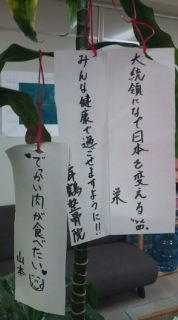 大統領になって日本を変える
栄
みんな健康で過ごせますように!!
舞鶴整骨院
でっかい肉が食べたい
山本